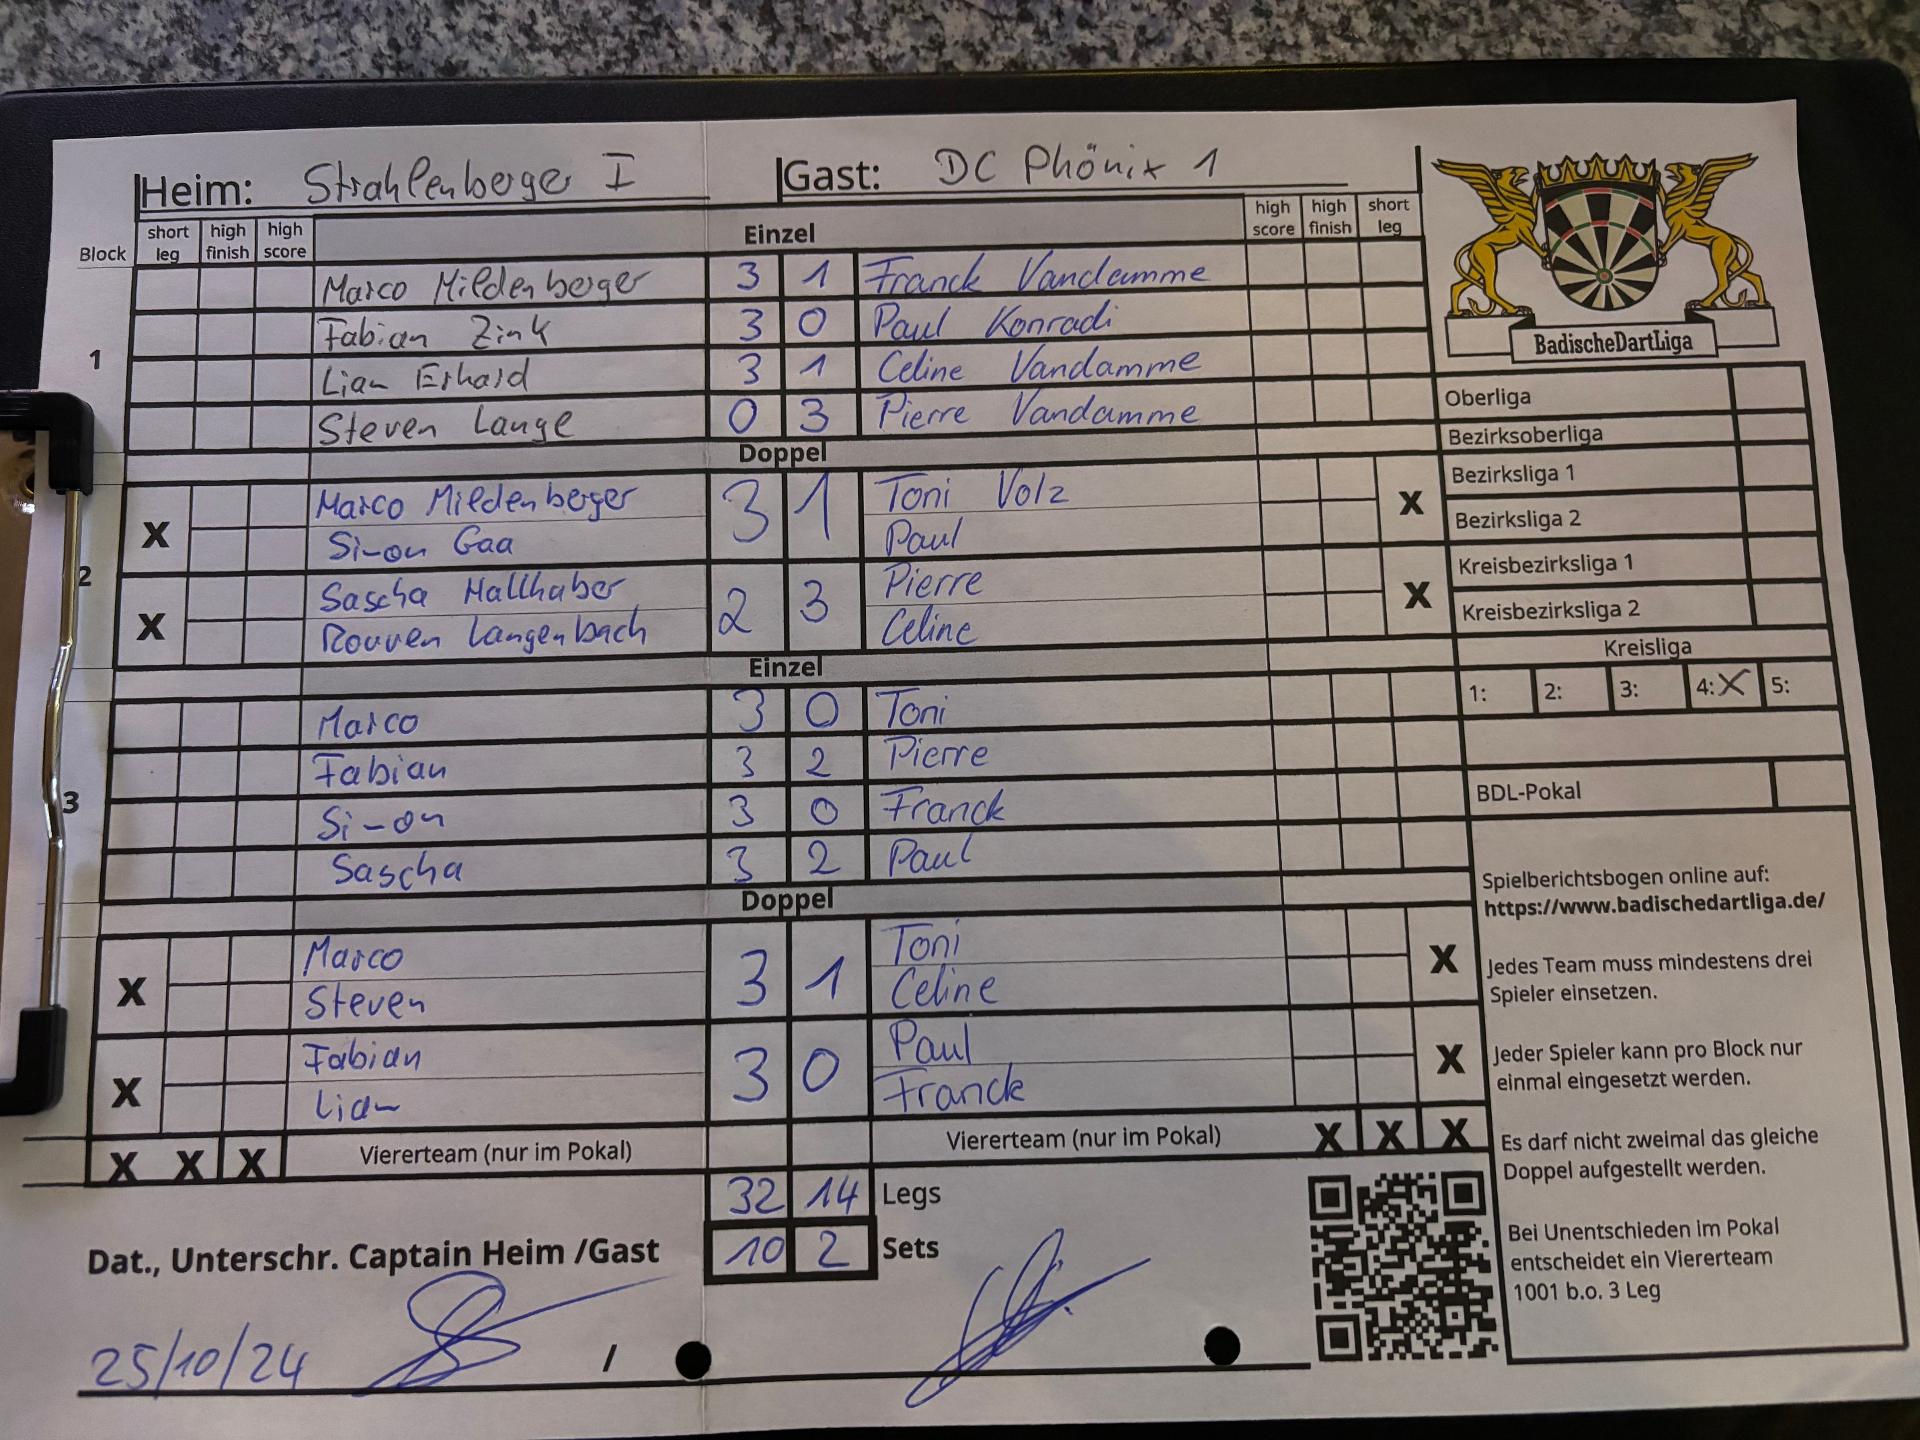 Heim: Strahlenberger I Gast: DC Phönix 1
Block short leg high finish high score Einzel high score high finish short leg
1
Marco Mildenberger 3 1 Franck Vandamme
Fabian Zink 3 0 Paul Konradi
Lian Erhard 3 1 Celine Vandamme
Steven Lange 0 3 Pierre Vandamme
Doppel
2
X Marco Mildenberger 3 1 Toni Volz X
Simon Gaa Paul
X Sascha Mallhaber 2 3 Pierre X
Rouven Langenbach Celine
Einzel
3
Marco 3 0 Toni
Fabian 3 2 Pierre
Simon 3 0 Franck
Sascha 3 2 Paul
Doppel
X Marco 3 1 Toni X
Steven Celine
X Fabian 3 0 Paul X
Lian Franck
X X X Viererteam (nur im Pokal) Viererteam (nur im Pokal) X X X
32 14 Legs
10 2 Sets
Dat., Unterschr. Captain Heim /Gast
25/10/24 /
BadischeDartLiga
Oberliga
Bezirksoberliga
Bezirksliga 1
Bezirksliga 2
Kreisbezirksliga 1
Kreisbezirksliga 2
Kreisliga
1: 2: 3: 4: X 5:
BDL-Pokal
Spielberichtsbogen online auf:
https://www.badischedartliga.de/
Jedes Team muss mindestens drei
Spieler einsetzen.
Jeder Spieler kann pro Block nur
einmal eingesetzt werden.
Es darf nicht zweimal das gleiche
Doppel aufgestellt werden.
Bei Unentschieden im Pokal
entscheidet ein Viererteam
1001 b.o. 3 Leg